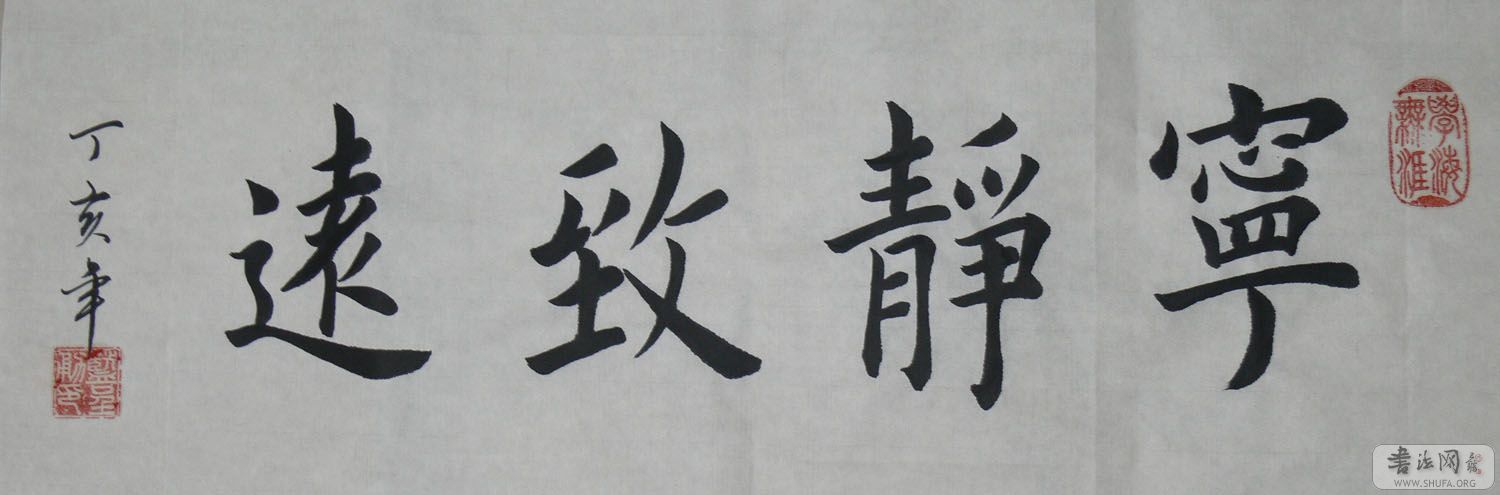 學海無涯
寧靜致遠
丁亥年
书法网
WWW.SHUFA.ORG